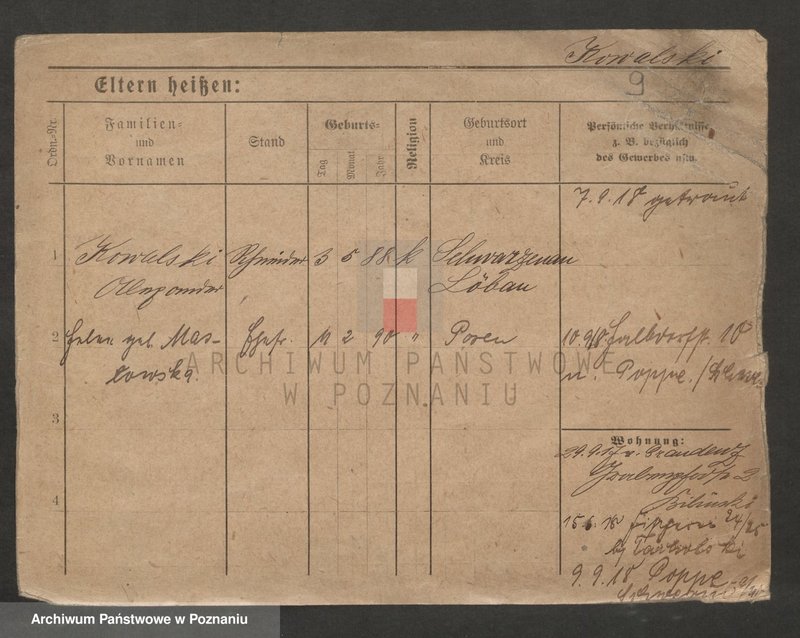 Kowalski
Eltern heißen:
9
Ordn.-Nr.
Familien-
und
Vornamen
Stand
Geburts-
Tag
Monat
Jahr
Religion
Geburtsort
und
Kreis
Persönliche Verhältnisse
z. B. bezüglich
des Gewerbes usw.
7.9.18 getraut
1
Kowalski Schneider 3 5 88 k Schwarzenau
Alexander Löbau
2
Helene geb. Mas- Ehefr. 11 2 90 " Posen
lowska.
10.9.18 10
n. Poppe
ARCHIWUM PAŃSTWOWE
W POZNANIU
3
Wohnung:
29.9.17 v. Graudenz
2
Bilinski
4
15.6.18 24/25
bj
9.9.18 Poppe
Archiwum Państwowe w Poznaniu